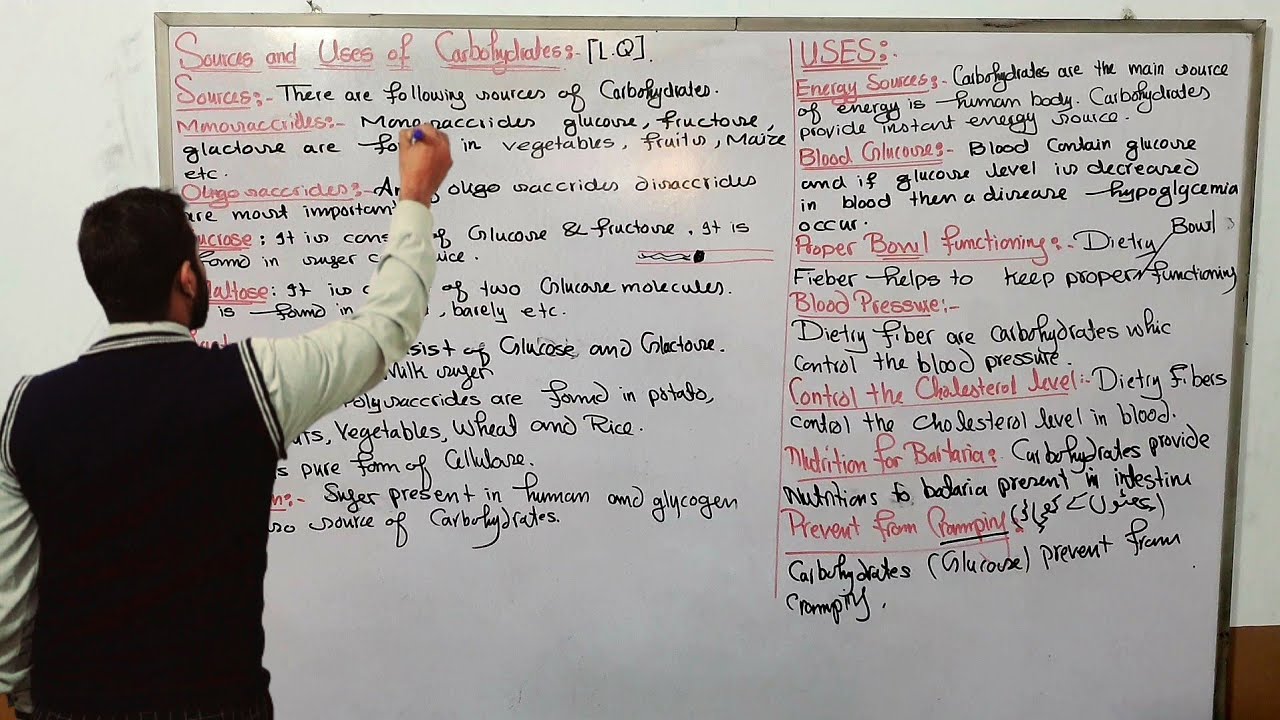 Sources and Uses of Carbohydrates:- [L.Q].
Sources:- There are following sources of Carbohydrates.
Monosaccrides:- Monosaccrides glucose, fructose,
glactose are in vegetables, fruits, Maize
etc.
Oligosaccrides:- oligosaccrides disaccrides
are most important
ucrose: It is cons of Glucose & fructose. It is
found in suger
altose: It is of two Glucose molecules.
is found in , barely etc.
sist of Glucose and Glactose.
Milk suger
olysaccrides are found in potato,
Vegetables, Wheat and Rice.
s pure form of Cellulose.
Suger present in human and glycogen
so source of Carbohydrates.
USES:-
Energy Sources:- Carbohydrates are the main source
of energy is human body. Carbohydrates
provide instant energy source.
Blood Glucose:- Blood Contain glucose
and if glucose level is decreased
in blood then a disease hypoglycemia
occur.
Proper Bowl functioning:- Dietry Bowl
Fieber helps to keep proper functioning
Blood Pressure:-
Dietry fiber are carbohydrates whic
control the blood pressure.
Control the Cholesterol level:- Dietry fibers
control the cholesterol level in blood.
Nutrition for Bactaria: Carbohydrates provide
Nutritions to bactaria present in intestine
Prevent from
Carbohydrates (Glucose) prevent from